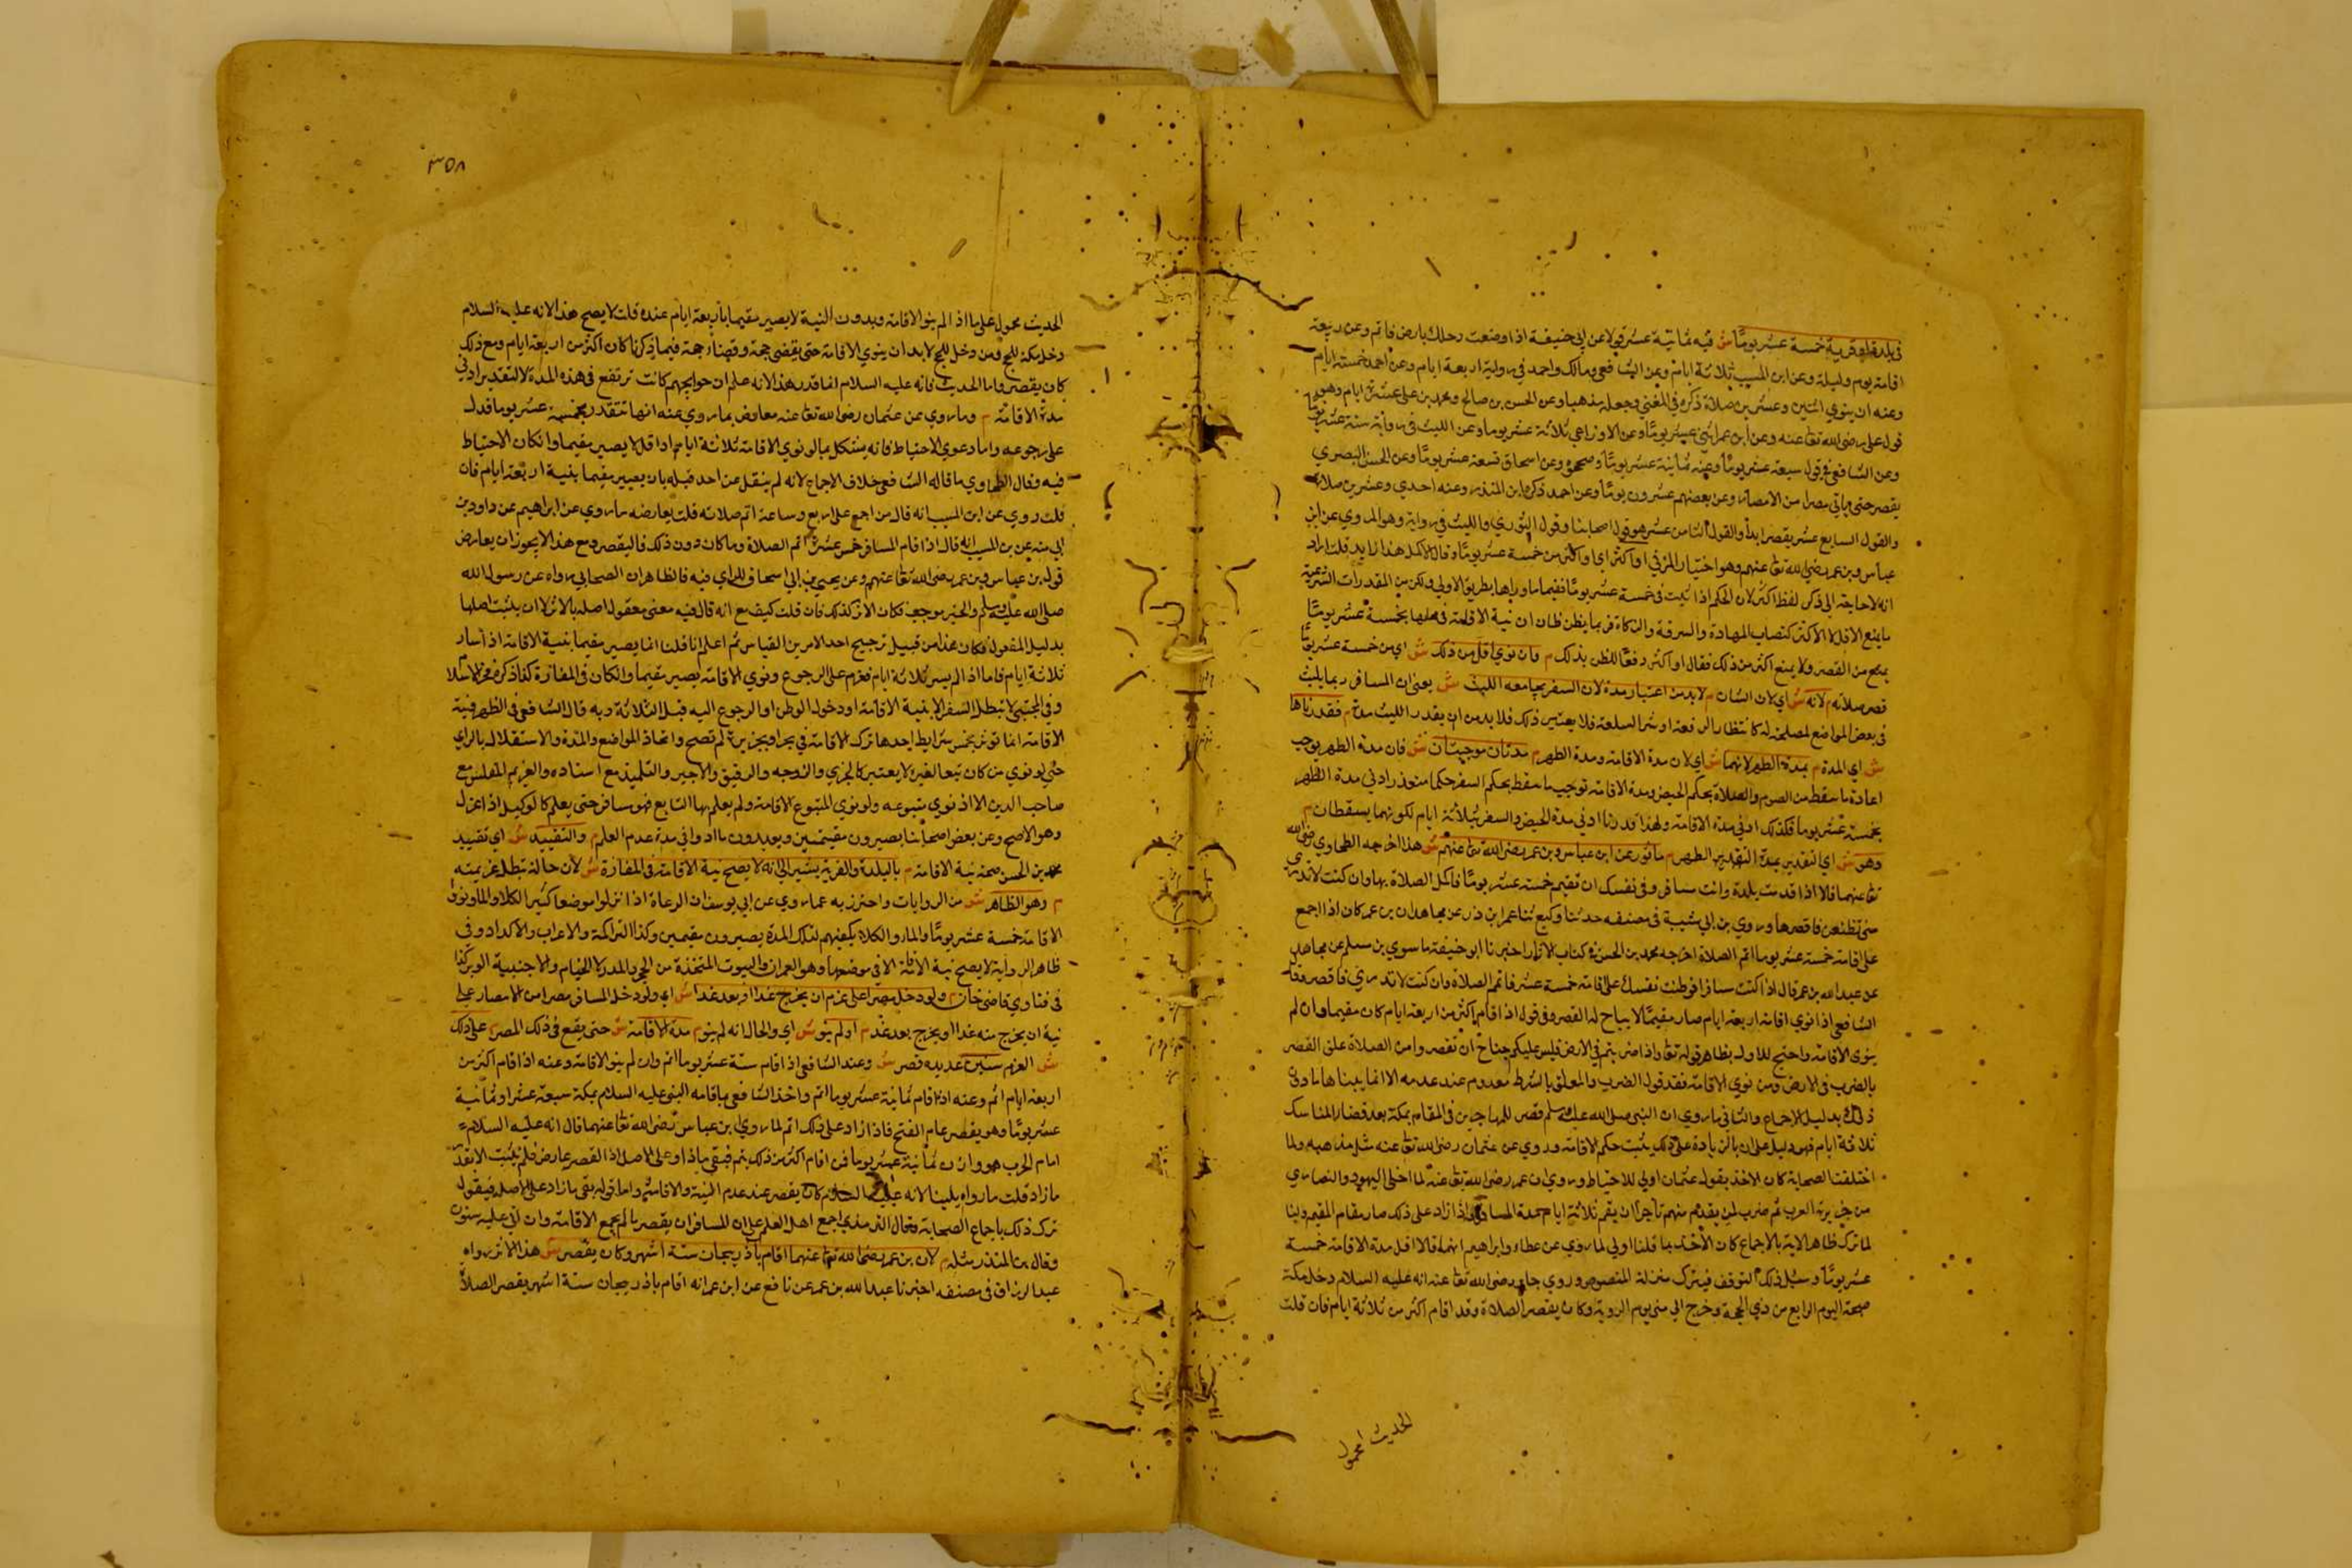 في بلدة او قرية خمسة عشر يوما ش فيه ثمانية عشر قولا عن ابي حنيفة اذا وضعت رحلك بارض فاتم وعن ربيعة
اقامة يوم وليلة وعن ابن المسيب ثلاثة ايام وعن الشافعي ومالك واحمد في رواية اربعة ايام وعن احمد خمسة ايام
وعنه ان ينوي اثنين وعشرين صلاة ذكره في المغني وجعله مذهبا وعن الحسن بن صالح ومحمد بن علي عشرة ايام وهو
قول علي رضي الله تعا عنه وعن ابن عمر اثنى عشر يوما وعن الاوزاعي ثلاثة عشر يوما وعن الليث في رواية ستة عشر يوما
وعن الشافعي في قول سبعة عشر يوما وعنه ثمانية عشر يوما وعن اسحاق تسعة عشر يوما وعن الحسن البصري
يقصر حتى ياتي مصرا من الامصار وعن بعضهم عشرون يوما وعن احمد ذكره ابن المنذر وعنه احدي وعشرين صلاة
والقول السابع عشر يقصر ابدا والقول الثامن عشر هو قول اصحابنا وقول الثوري والليث في رواية وهو المروي عن ابن
عباس وبن عمر رضي الله تعا عنهم وهو اختيار المزني م او اكثر اي او اكثر من خمسة عشر يوما وقال الاكمل هذا زايد قلت اراد
انه لا حاجة الى ذكر لفظ اكثر لان الحكم اذا ثبت في خمسة عشر يوما ففيما وراها بطريق الاولي ولكن من المقدرات الشرعية
ما يمنع الاقل لا الاكثر كنصاب المهادة والسرقة والزكاة فربما يظن ظان ان نية الاقامة في محلها بخمسة عشر يوما
يمنع من القصر ولا يمنع اكثر من ذلك فقال او اكثر دفعا للظن بذلك م وان نوي اقل من ذلك ش اي من خمسة عشر يوما
قصر صلاته م لانه ش اي لان الشان م لا بد من اعتبار مدة لان السفر يجامعه اللبث ش يعني ان المسافر ربما يلبث
في بعض المواضع لمصلحة له كانتظار الرفعة او شرا السلعة فلا يعتبر ذلك فلا بد من ان يقدر اللبث مدة م فقدرناها
ش اي المدة م بمدة الطهر لانهما ش اي لان مدة الاقامة ومدة الطهر م مدتان موجبتان ش فان مدة الطهر يوجب
اعادة ما سقط من الصوم والصلاة بحكم الحيض ومدة الاقامة توجب ما سقط بحكم السفر فكما تتقدر ادني مدة الطهر
بخمسة عشر يوما فكذلك ادني مدة الاقامة ولهذا قدرنا ادني مدة الحيض والسفر بثلاثة ايام لكونهما يسقطان م
وهو ش اي التقدير بمدة الطهر م ماثور عن ابن عباس وبن عمر رضي الله تعا عنهم ش هذا اخرجه الطحاوي رضي الله
تعا عنهما قالا اذا قدمت بلدة وانت مسافر وفي نفسك ان تقيم خمسة عشر يوما فاكمل الصلاة بها وان كنت لا تدري
متى تظعن فاقصرها وروي بن ابي شيبة في مصنفه حدثنا وكيع ثنا عمر ابن ذر عن مجاهد ان بن عمر كان اذا اجمع
على اقامة خمسة عشر يوما اتم الصلاة اخرجه محمد بن الحسن في كتاب الاثار اخبرنا ابو حنيفة ما سوي بن مسلم عن مجاهد
عن عبد الله بن عمر قال اذا كنت مسافرا فوطنت نفسك على اقامة خمسة عشر فاتم الصلاة وان كنت لا تدري فاقصر وقال
الشافعي اذا نوي اقامة اربعة ايام صار مقيما لا يباح له القصر وفي قول اذا اقام اكثر من اربعة ايام كان مقيما وان لم
ينوي الاقامة واحتج للاول بظاهر قوله تعا واذا ضربتم في الارض فليس عليكم جناح ان تقصروا من الصلاة علق القصر
بالضرب في الارض ومن نوي الاقامة فقد قول الضرب والمعلق بالشرط معدوم عند عدمه الا انا
ذلك بدليل الاجماع والثاني ما روي ان النبي صلى الله عليه وسلم قصر للمهاجرين في المقام بمكة بعد قضا المناسك
ثلاثة ايام فهو دليل على ان بالزيادة على ذلك يثبت حكم الاقامة وروي عن عثمان رضي الله تعا عنه مثل مذهبه ولما
اختلفت الصحابة كان الاخذ بقول عثمان اولي للاحتياط وروي ان عمر رضي الله تعا عنه لما اجلى اليهود والنصاري
من جزيرة العرب ثم ضرب لمن يقدم منهم تاجرا ان يقم ثلاثة ايام مدة المسافر واذا زاد على ذلك صار مقام المقيم ولنا
لما ترك ظاهر الاية بالاجماع كان الاخذ بما قلنا اولي لما روي عن عطاء وابراهيم انهما قالا اقل مدة الاقامة خمسة
عشر يوما وسبيل ذلك التوقف فيترك منزلة المنصوص وروي جابر رضي الله تعا عنه انه عليه السلام دخل مكة
صبحة اليوم الرابع من ذي الحجة وخرج الى منى يوم التروية وكان يقصر الصلاة وقد اقام اكثر من ثلاثة ايام فان قلت
الحديث محمول
٣٥٨
الحديث محمول على ما اذا لم ينو الاقامة وبدون النية لا يصير مقيما باربعة ايام عنده قلت لا يصح هذا لانه عليه السلام
دخل مكة للحج ومن دخل للحج لا بد ان ينوي الاقامة حتى يقضي حجه وقضاء حجه فيما ذكرنا كان اكثر من اربعة ايام ومع ذلك
كان يقصر واما الحديث فانه عليه السلام انما قدر هذا لانه علم ان حوايجهم كانت ترتفع في هذه المدة لا لتقدير ادني
مدة الاقامة م وما روي عن عثمان رضي الله تعا عنه معارض بما روي عنه انها تتقدر بخمسة عشر يوما فدل
على رجوعه واما دعوي الاحتياط فانه يشكل بما لو نوي الاقامة ثلاثة ايام او اقل لا يصير مقيما وان كان الاحتياط
فيه وقال الطحاوي ما قاله الشافعي خلاف الاجماع لانه لم ينقل عن احد قبله بان يصير مقيما بنية اربعة ايام فان
قلت روي عن ابن المسيب انه قال من اجمع على اربع وساعة اتم صلاته قلت يعارضه ما روي عن ابراهيم عن داود بن
ابي هند عن بن المسيب انه قال اذا اقام المسافر خمس عشرة اتم الصلاة وما كان دون ذلك فاليقصر ومع هذا لا يجوز ان يعارض
قول بن عباس وبن عمر رضي الله تعا عنهم وعن يحيى بن ابي اسحاق للراي فيه فالظاهر ان الصحابي رواه عن رسول الله
صلى الله عليه وسلم والخبر موجب فكان الاثر كذلك فان قلت كيف مع انه قال فيه معنى معقول اصله بالاثر لا ان يثبت اصلها
بدليل المعقول فكان هذا من قبيل ترجيح احد الامرين القياس ثم اعلم انا قلنا انما يصير مقيما بنية الاقامة اذا سار
ثلاثة ايام فاما اذا لم يسر ثلاثة ايام فعزم على الرجوع ونوي الاقامة يصير مقيما وان كان في المفازة كذا ذكره فخر الاسلام
وفي المجتبى لا يبطل السفر الا بنية الاقامة او دخول الوطن او الرجوع اليه قبل الثلاثة وبه قال الشافعي في الظهر فنية
الاقامة انما تؤثر بخمس شرايط احدها ترك الاقامة في بحر او جزيرة لم تصح واتحاد المواضع والمدة والاستقلال بالراي
حتى لو نوي من كان تبعا لغيره لا يعتبر كالجندي والزوجه والرقيق والاجير والتلميذ مع استاده والغريم المفلس مع
صاحب الدين الا اذا نوي متبوعه ولو نوى المتبوع الاقامة ولم يعلم بها التابع فهو مسافر حتى يعلم كالوكيل اذا عزل
وهو الاصح وعن بعض اصحابنا يصيرون مقيمين ويعيدون ما ادوا في مدة عدم العلم م والتقييد ش اي تقييد
محمد بن الحسن صحة نية الاقامة م بالبلدة والقرية يشير الى انه لا يصح نية الاقامة في المفازة ش لان حاله تبطل عزيمته
م وهو الظاهر ش من الروايات واحترز به عما روي عن ابي يوسف ان الرعاة اذا نزلوا موضعا كثير الكلاء والماء ونووا
الاقامة خمسة عشر يوما والماء والكلاء يكفيهم لتلك المدة يصيرون مقيمين وكذا التراكمة والاعراب والاكراد وفي
ظاهر الرواية لا يصح نية الاقامة الا في موضعها وهو العمران والبيوت المتخذة من الحجر والمدر لا الخيام والاخبية الوبر كذا
في فتاوي قاضي خان م ولو دخل مصرا على عزم ان يخرج غدا او بعد غد ش اي ولو دخل المسافر مصرا من الامصار على
نية ان يخرج منه غدا او يخرج بعد غد م او لم ينو ش اي والحال انه لم ينو م مدة الاقامة ش حتى يقع في ذلك المصر م على ذلك
ش العزم سنين عديدة قصر ش وعند الشافعي اذا اقام ستة عشر يوما اتم وان لم ينو الاقامة وعنه اذا اقام اكثر من
اربعة ايام اتم وعنه اذا اقام ثمانية عشر يوما اتم واخذ الشافعي باقامة النبي عليه السلام بمكة سبعة عشر او ثمانية
عشر يوما وهو يقصر عام الفتح فاذا زاد على ذلك اتم لما روي ابن عباس رضي الله تعا عنهما قال انه عليه السلام
امام لحرب هوازن ثمانية عشر يوما فمن اقام اكثر من ذلك يتم فبقي ماذا وعلى الاصل اذ القصر عارض فلم يثبت الا بقدر
ما زاد قلت ما رواه يلبنا لانه عليه السلام كان يقصر عند عدم النية والاقامة واما قوله بقي ما زاد على الاصل فيقول
ترك ذلك باجماع الصحابة وقال الترمذي اجمع اهل العلم على ان المسافر ان يقصر ما لم يجمع الاقامة وان اتي عليه سنون
وقال بن المنذر مثله م لان بن عمر رضي الله تعا عنهما اقام باذربيجان ستة اشهر وكان يقصر ش هذا الاثر رواه
عبد الرزاق في مصنفه اخبرنا عبد الله بن عمر عن نافع عن ابن عمر انه اقام باذربيجان ستة اشهر يقصر الصلاة